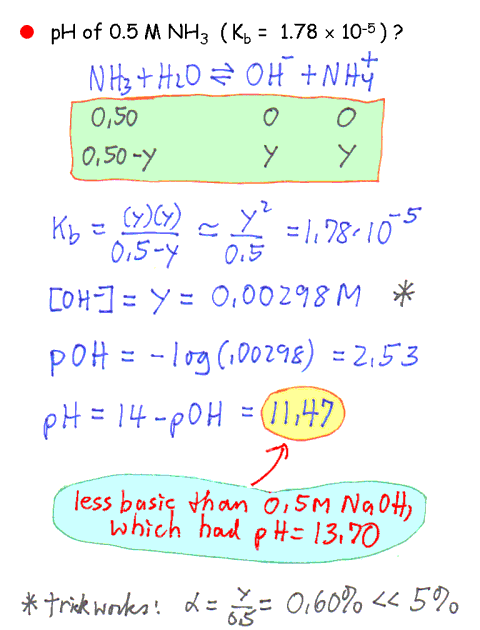 ● pH of 0.5 M NH₃ ( K_b = 1.78 × 10⁻⁵ ) ?
NH₃ + H₂O ⇌ OH⁻ + NH₄⁺
0,50 0 0
0,50-y y y
K_b = (y)(y)/0,5-y ≃ y²/0.5 = 1,78·10⁻⁵
[OH⁻] = y = 0,00298 M *
pOH = -log(,00298) = 2,53
pH = 14 - pOH = 11,47
less basic than 0,5M NaOH,
which had pH = 13,70
* trick works: α = y/0.5 = 0,60% << 5%